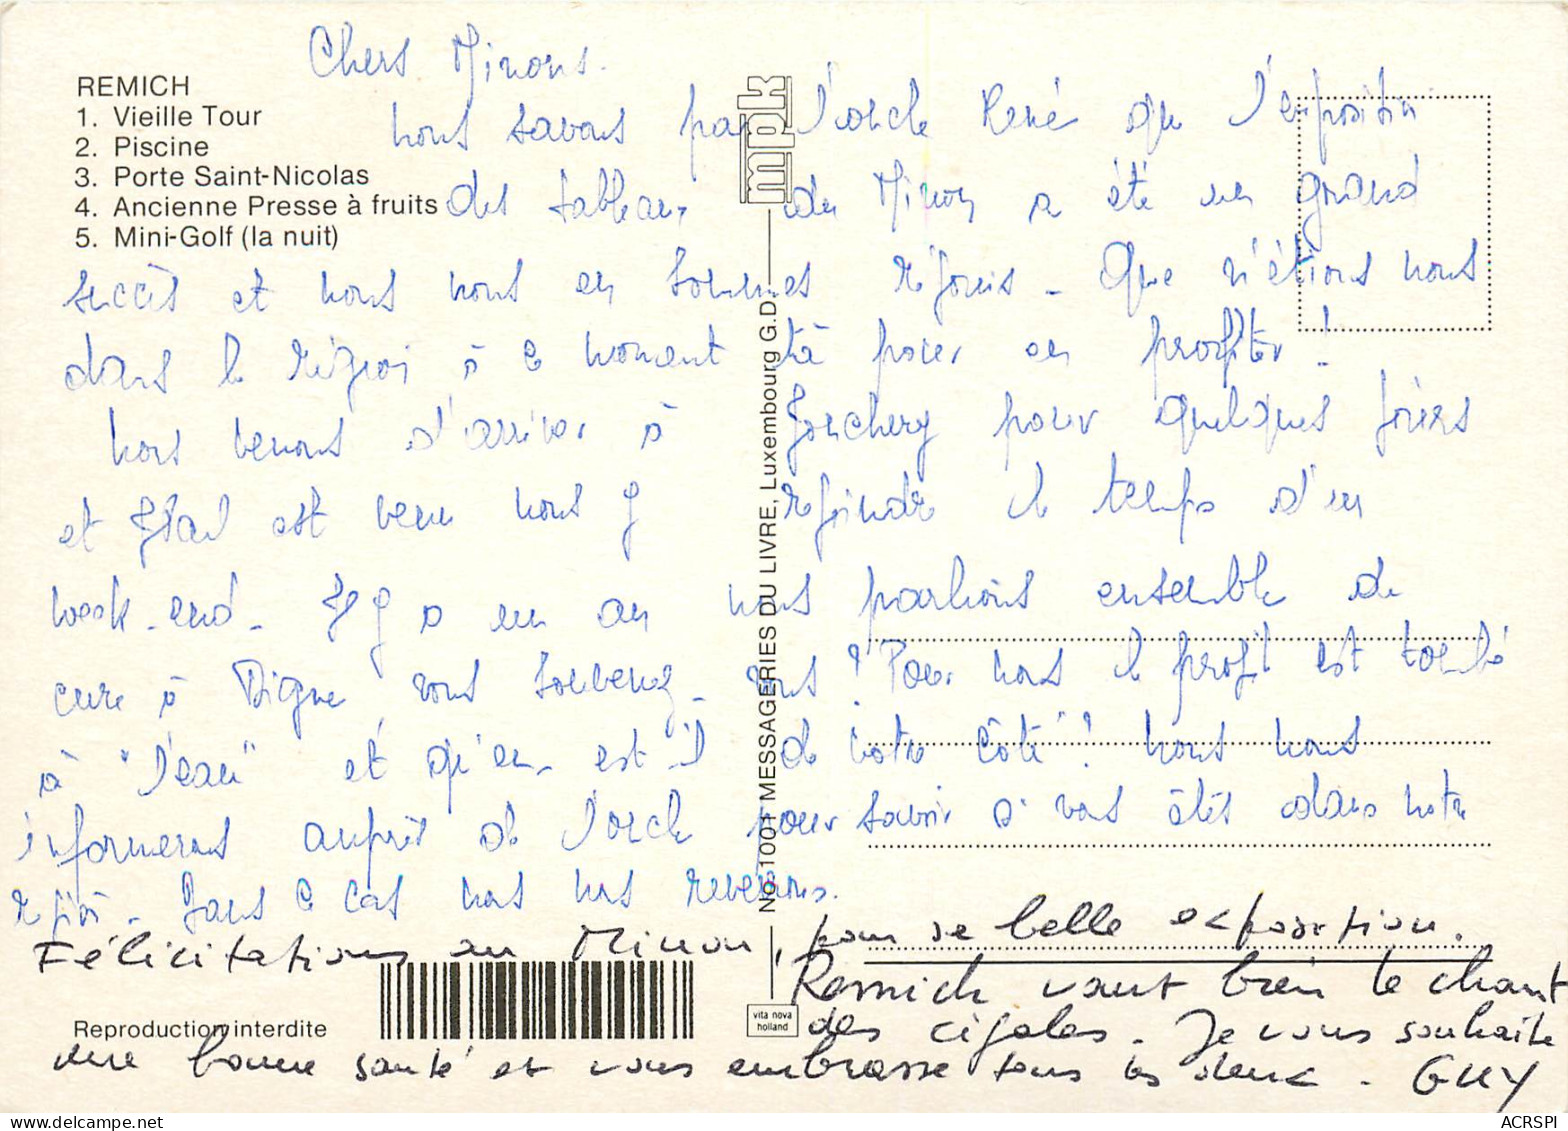 Chers Minons.
REMICH
1. Vieille Tour
2. Piscine
3. Porte Saint-Nicolas
4. Ancienne Presse à fruits
5. Mini-Golf (la nuit)
nous savons par l'oncle René que l'exposition
des tableaux du Minon a été un grand
succès et nous nous en sommes réjouis - Que n'étions nous
dans la région à ce moment là pour en profiter !
nous venons d'arriver à pour quelques jours
et est venu nous y rejoindre le temps d'un
week-end - Il y a un an nous parlions ensemble de
cure à Digne vous souvenez-vous ? Pour nous le projet est tombé
à "l'eau" et qu'en est-il de votre côté ? nous nous
informerons auprès de l'oncle pour savoir si vous êtes dans notre
région - Dans ce cas nous nous reverrons.
Félicitations au Minou, pour se belle exposition.
Remich vaut bien le chant
des cigales. Je vous souhaite
une bonne santé et vous embrasse tous les deux. GUY
mpk
No. 1001 MESSAGERIES DU LIVRE, Luxembourg G.D.
Reproduction interdite
vita nova
holland
ACRSPI